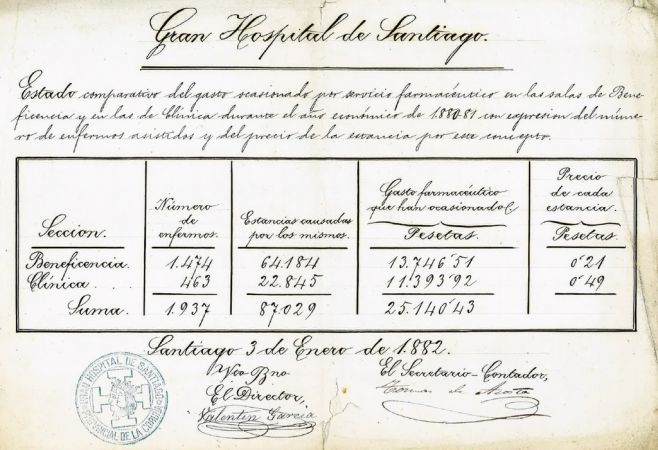 Gran Hospital de Santiago.
Estado comparativo del gasto ocasionado por servicio farmacéutico en las salas de Bene-
ficencia y en las de Clínica durante el año económico de 1.880-81 con expresion del núme-
ro de enfermos asistidos y del precio de la estancia por este concepto.
Seccion. Número de enfermos. Estancias causadas por los mismos. Gasto farmacéutico que han ocasionado Pesetas. Precio de cada estancia. Pesetas.
Beneficencia. 1.474 64.184 13.746'51 0'21
Clínica 463 22.845 11.393'92 0'49
Suma. 1.937 87.029 25.140'43
Santiago 3 de Enero de 1.882.
Vto Bno
El Director,
Valentin García
El Secretario-Contador,
Tomas de Acosta
HOSPITAL DE SANTIAGO
PROVINCIAL DE LA CORUÑA